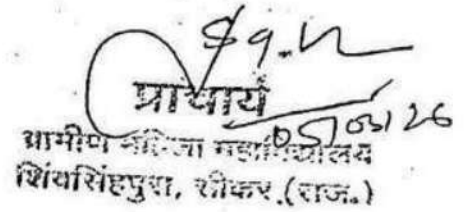 प्राचार्य
05/03/26
ग्रामीण महिला महाविद्यालय
शिवसिंहपुरा, सीकर (राज.)